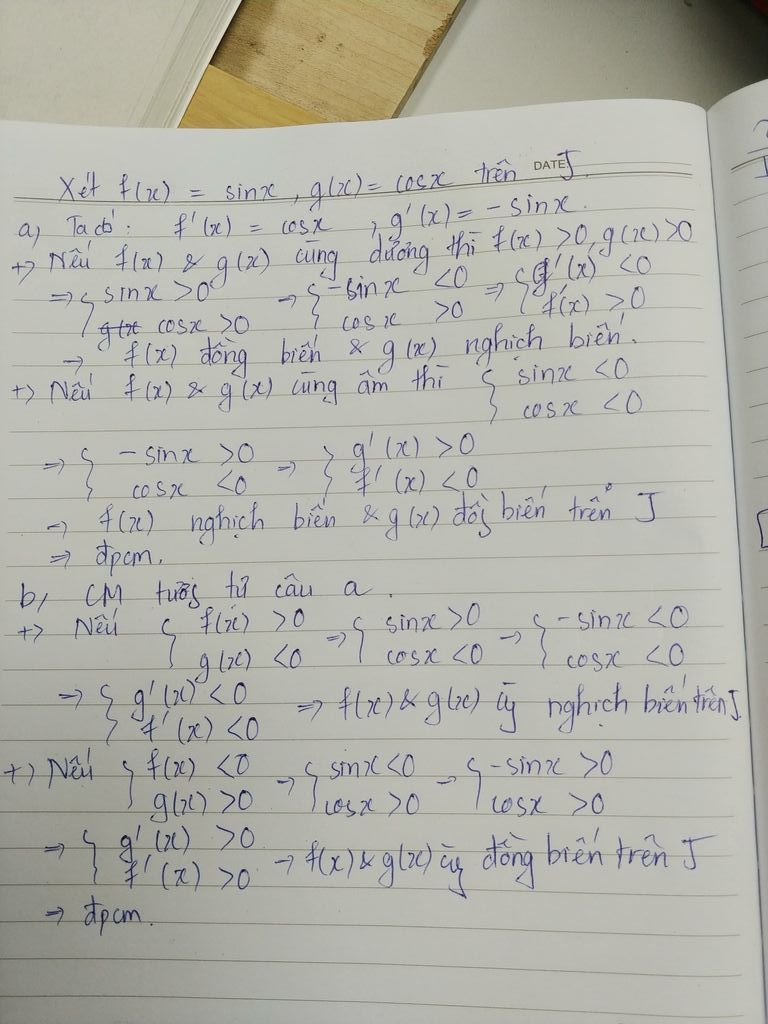 DATE
Xét f(x) = sinx, g(x) = cosx trên J.
a) Ta có: f'(x) = cosx, g'(x) = -sinx.
+) Nếu f(x) & g(x) cùng dương thì f(x) >0, g(x) >0
⇒ { sinx >0 → { -sinx <0 ⇒ { g'(x) <0
cosx >0 cosx >0 f'(x) >0
→ f(x) đồng biến & g(x) nghịch biến.
+) Nếu f(x) & g(x) cùng âm thì { sinx <0
cosx <0
⇒ { -sinx >0 → { g'(x) >0
cosx <0 f'(x) <0
→ f(x) nghịch biến & g(x) đồg biến trên J
⇒ đpcm.
b, CM tươg tự câu a.
+) Nếu { f(x) >0 ⇒ { sinx >0 → { -sinx <0
g(x) <0 cosx <0 cosx <0
⇒ { g'(x) <0 ⇒ f(x) & g(x) cùg nghịch biến trên J.
f'(x) <0
+) Nếu { f(x) <0 → { sinx <0 → { -sinx >0
g(x) >0 cosx >0 cosx >0
⇒ { g'(x) >0 → f(x) & g(x) cùg đồng biến trên J
f'(x) >0
⇒ đpcm.